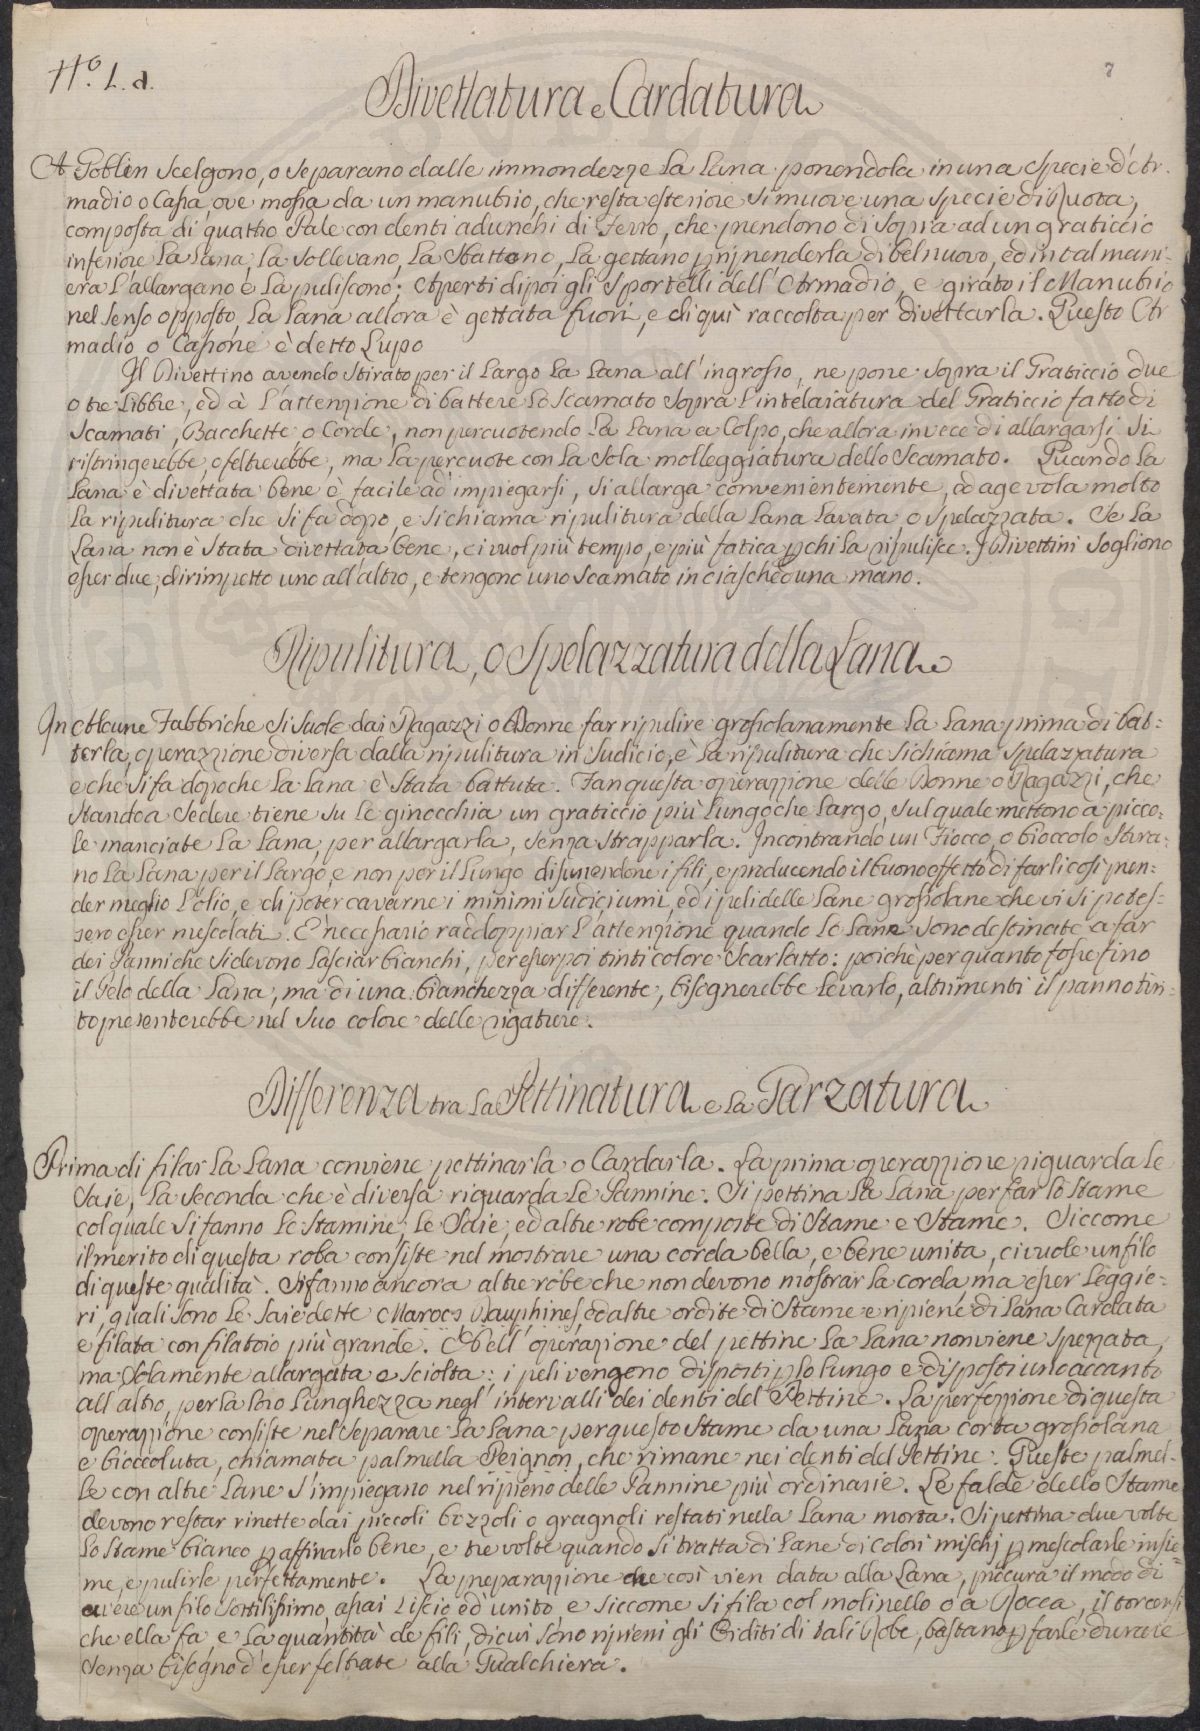 N.º 1. a.
7
Divettatura e Cardatura
A Goblen scelgono, o separano dalle immondezze la Lana ponendola in una specie d'Ar-
madio o Cassa, ove mossa da un manubrio, che resta esteriore si muove una specie di Ruota,
composta di quattro Pale con denti adunchi di Ferro, che prendono di sopra ad un graticcio
inferiore la Lana, la sollevano, la sbattono, la gettano p riprenderla di bel nuovo, ed in tal mani-
era l'allargano e la puliscono; Aperti di poi gli sportelli dell'Armadio, e girato il Manubrio
nel senso opposto, la Lana allora è gettata fuori, e di quì raccolta per divettarla. Questo Ar
madio o Cassone è detto Lupo
Il Divettino avendo stirato per il Largo la Lana all'ingrosso, ne pone sopra il Graticcio due
o tre Libbre, ed à l'attenzione di battere lo scamato sopra l'intelaiatura del Graticcio fatto di
Scamati, Bacchette o Corde, non percuotendo la Lana a Colpo, che allora invece di allargarsi si
ristringerebbe, o feltrerebbe, ma la percuote con la sola molleggiatura dello scamato. Quando la
Lana è divettata bene è facile ad impiegarsi, si allarga convenientemente, ed agevola molto
la ripulitura che si fa dopo, e si chiama ripulitura della Lana Lavata o spelazzata. Se la
Lana non è stata divettata bene, ci vuol più tempo, e più fatica p chi la ripulisce. I Divettini sogliono
esser due, dirimpetto uno all'altro, e tengono uno scamato in ciascheduna mano.
Ripulitura, o Spelazzatura della Lana
In Alcune Fabbriche si suole dai Ragazzi o Donne far ripulire grossolanamente la Lana prima di bat-
terla, operazzione diversa dalla ripulitura in sudicio, è la ripulitura che si chiama spelazzatura
e che si fa dopo che la Lana è stata battuta. Fan questa operazzione delle Donne o Ragazzi, che
stando a sedere tiene su le ginocchia un graticcio più lungo che largo, sul quale mettono a picco-
le manciate la Lana, per allargarla, senza strapparla. Incontrando un Fiocco, o bioccolo stira-
no la Lana per il Largo, e non per il Lungo disunendone i fili, e producendo il buono effetto di farli così pren-
der meglio l'olio, e di poter cavarne i minimi sudiciumi, ed i peli delle Lane grossolane che vi si potes-
sero esser mescolati. È necessario raddoppiar l'attenzione quando le Lane sono destinate a far
dei Panni che si devono lasciar bianchi, per esser poi tinti colore scarlatto: poichè per quanto fosse fino
il Pelo della Lana, ma di una bianchezza differente, bisognerebbe levarlo, altrimenti il panno tin-
to presenterebbe nel suo colore delle rigature.
Differenza tra la Pettinatura e la Garzatura
Prima di filar la Lana conviene pettinarla o Cardarla. La prima operazzione riguarda le
Saie, la seconda che è diversa riguarda le Pannine. Si pettina la Lana per far lo stame
col quale si fanno le stamine, le Saie, ed altre robe composte di stame e stame. Siccome
il merito di questa roba consiste nel mostrare una corda bella, e bene unita, ci vuole un filo
di queste qualità. Si fanno ancora altre robe che non devono mostrar la corda, ma esser leggie-
ri, quali sono le Saie dette Marocs, Dauphines, ed altre ordite di stame e ripiene di Lana Cardata
e filata con filatoio più grande. Nell'operazione del pettine la Lana non viene spezzata,
ma solamente allargata e sciolta: i peli vengono disposti p lo lungo e disposti uno accanto
all'altro, per la loro lunghezza negl'intervalli dei denti del Pettine. La perfezzione di questa
operazzione consiste nel separare la Lana per questo stame da una Lana corta grossolana
e bioccoluta, chiamata palmella Peignon, che rimane nei denti del Pettine. Queste palmel-
le con altre Lane s'impiegano nel ripieno delle Pannine più ordinarie. Le falde dello stame
devono restar rinette dai piccoli bozzoli o gragnoli restati nella Lana morta. Si pettina due volte
lo stame bianco p affinarlo bene, e tre volte quando si tratta di Lane di colori mischj p mescolarle insie-
me, e pulirle perfettamente. La preparazzione che così vien data alla Lana, procura il modo di
avere un filo sottilissimo, assai liscio ed unito, e siccome si fila col molinello o a Rocca, il torcersi
che ella fa, e la quantità de fili, di cui sono ripieni gli Orditi di tali Robe, bastano p farle durare
senza bisogno d'esser feltrate alla Gualchiera.